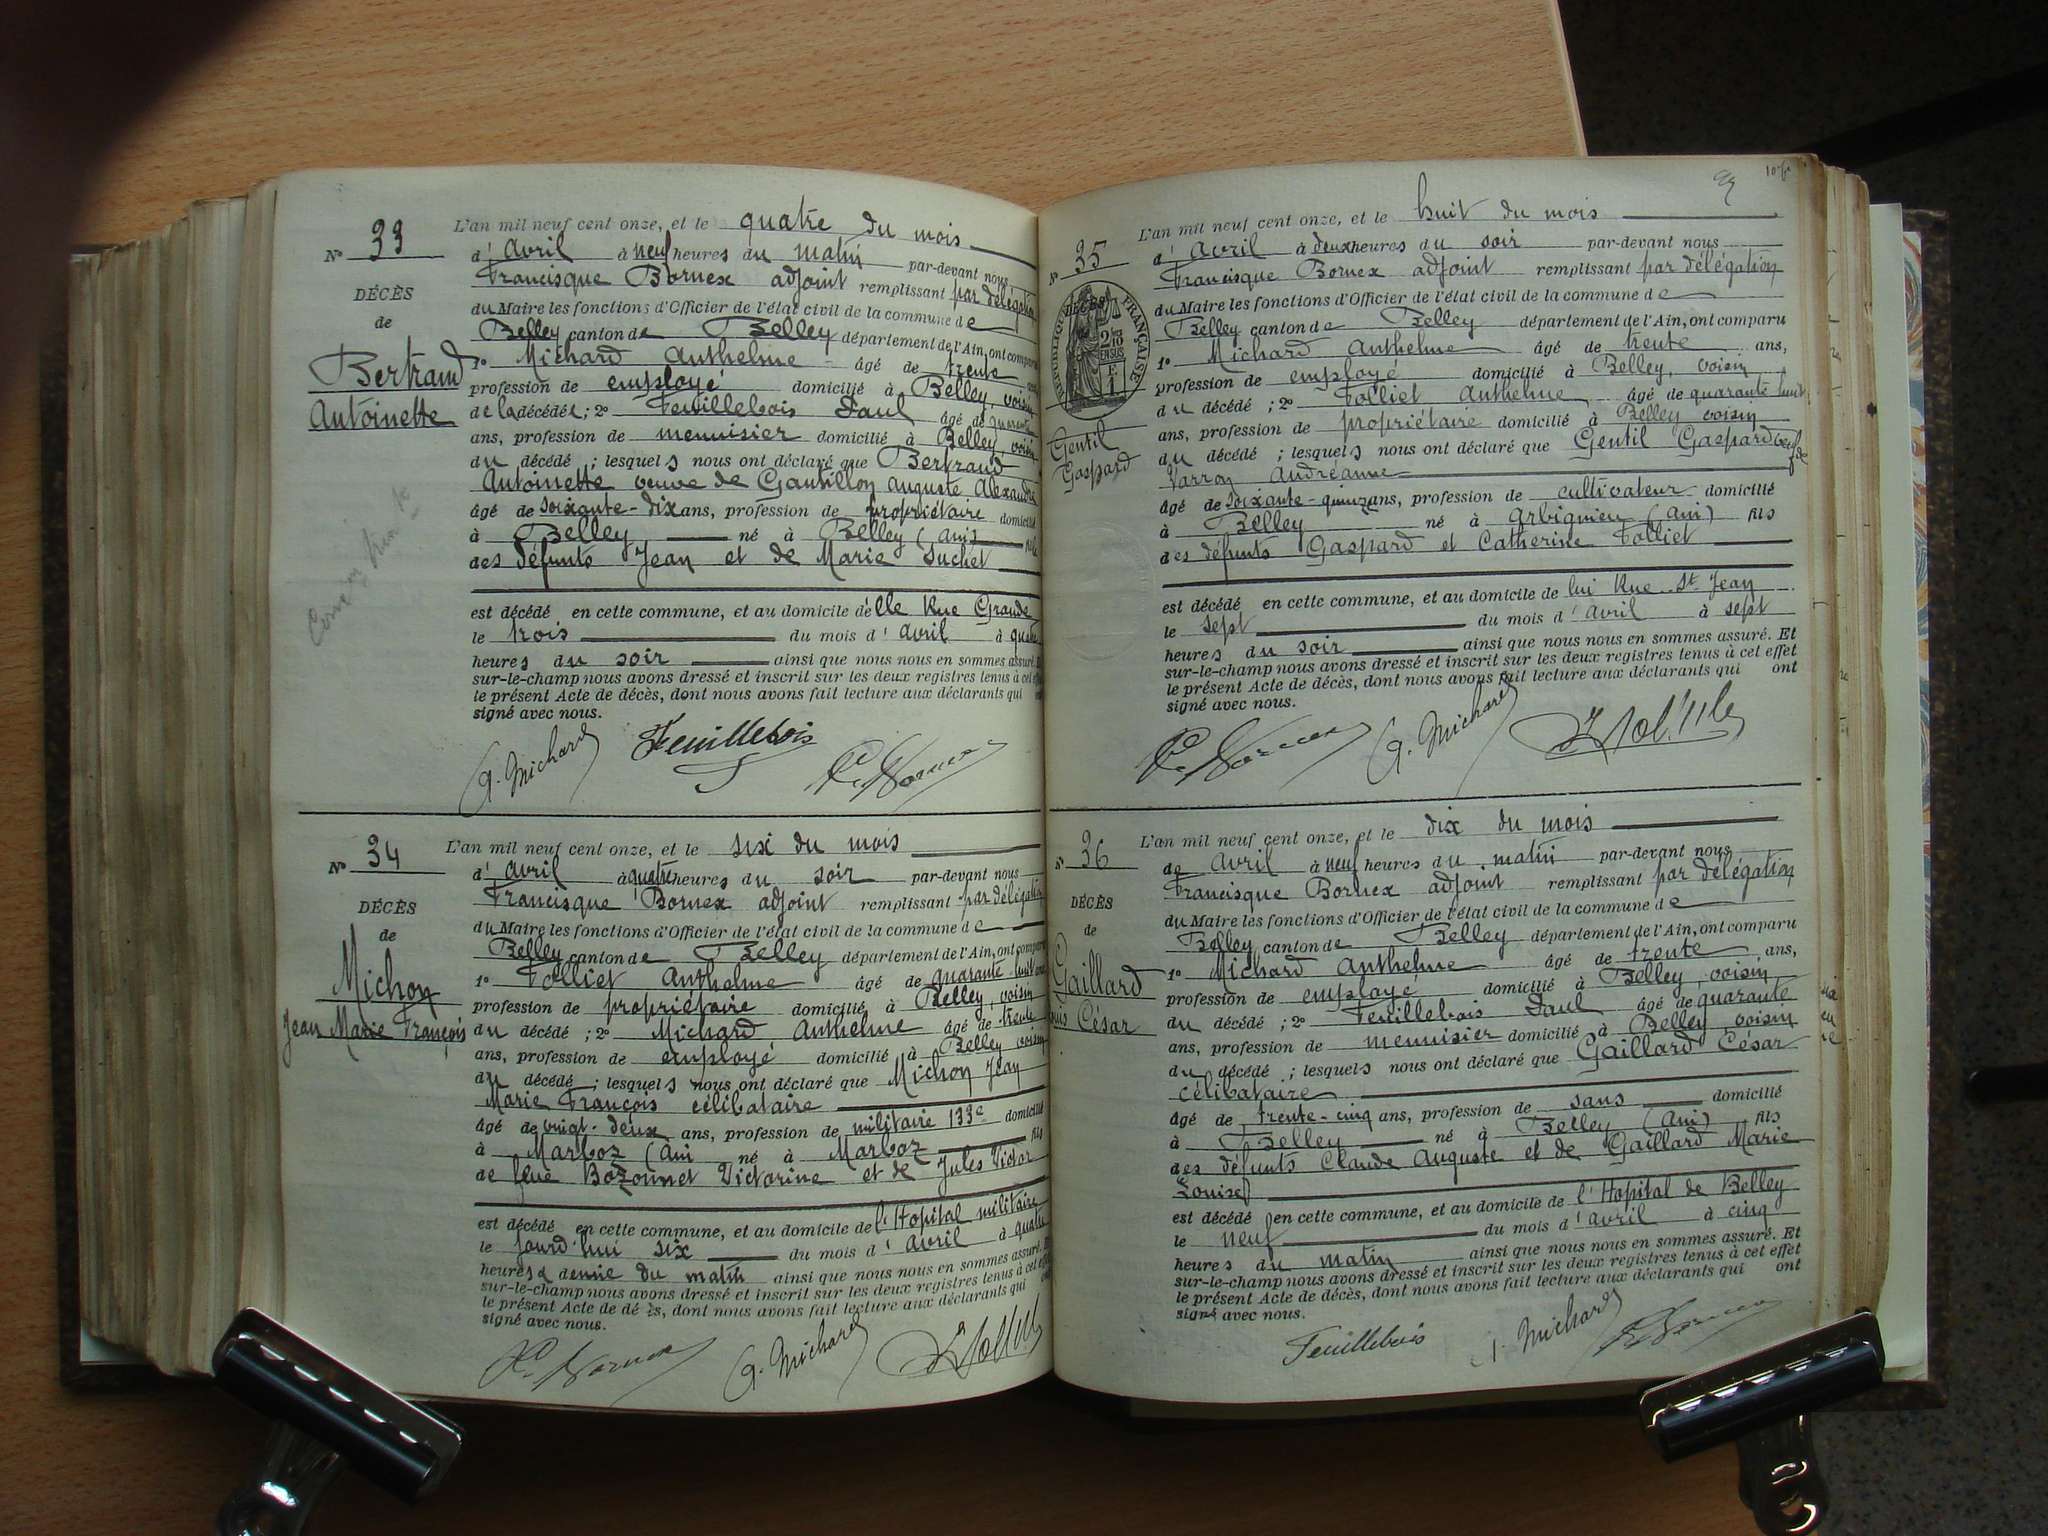 N° 33
DÉCÈS
de
Bertrand
Antoinette
L'an mil neuf cent onze, et le quatre du mois
d'avril à neuf heures du matin par-devant nous
Francisque Bornex adjoint remplissant par délégation
du Maire les fonctions d'Officier de l'état civil de la commune de
Belley canton de Belley département de l'Ain, ont comparu
1° Michard Anthelme âgé de trente ans
profession de employé domicilié à Belley, voisin
de la décédée; 2° Feuillebois Paul âgé de quarante
ans, profession de menuisier domicilié à Belley, voisin
du décédé; lesquels nous ont déclaré que Bertrand
Antoinette veuve de Gautillon auguste, Alexandre
âgé de soixante-dix ans, profession de propriétaire domicilié
à Belley né à Belley (ain) fils
des défunts Jean et de Marie Suchet
est décédé en cette commune, et au domicile d'elle Rue Grande
le trois du mois d'avril à quatre
heures du soir ainsi que nous nous en sommes assuré. Et
sur-le-champ nous avons dressé et inscrit sur les deux registres tenus à cet effet
le présent Acte de décès, dont nous avons fait lecture aux déclarants qui ont
signé avec nous.
A. Michard Feuillebois Fe Bornex
N° 34
DÉCÈS
de
Michon
Jean Marie François
L'an mil neuf cent onze, et le six du mois
d'avril à quatre heures du soir par-devant nous
Francisque Bornex adjoint remplissant par délégation
du Maire les fonctions d'Officier de l'état civil de la commune de
Belley canton de Belley département de l'Ain, ont comparu
1° Folliet Anthelme âgé de quarante huit ans
profession de propriétaire domicilié à Belley, voisin
du décédé; 2° Michard Anthelme âgé de trente
ans, profession de employé domicilié à Belley voisin
du décédé; lesquels nous ont déclaré que Michon Jean
Marie François célibataire
âgé de vingt-deux ans, profession de militaire 133e domicilié
à Marboz (ain né à Marboz fils
de feue Bozonnet Victorine et de Jules Victor
est décédé en cette commune, et au domicile de l'Hopital militaire
le jourd'hui six du mois d'avril à quatre
heures & demie du matin ainsi que nous nous en sommes assuré. Et
sur-le-champ nous avons dressé et inscrit sur les deux registres tenus à cet effet
le présent Acte de décès, dont nous avons fait lecture aux déclarants qui ont
signé avec nous.
Fe Bornex A. Michard Folliet
106
N° 35
DÉCÈS
RÉPUBLIQUE FRANÇAISE
Gentil
Gaspard
L'an mil neuf cent onze, et le huit du mois
d'avril à deux heures du soir par-devant nous
Francisque Bornex adjoint remplissant par délégation
du Maire les fonctions d'Officier de l'état civil de la commune de
Belley canton de Belley département de l'Ain, ont comparu
1° Michard Anthelme âgé de trente ans,
profession de employé domicilié à Belley, voisin
du décédé; 2° Folliet Anthelme âgé de quarante huit
ans, profession de propriétaire domicilié à Belley voisin
du décédé; lesquels nous ont déclaré que Gentil Gaspard veuf de
Varron Andréanne
âgé de soixante-quinze ans, profession de cultivateur domicilié
à Belley né à arbignieu (ain) fils
des défunts Gaspard et Catherine Folliet
est décédé en cette commune, et au domicile de lui Rue St Jean
le sept du mois d'avril à sept
heures du soir ainsi que nous nous en sommes assuré. Et
sur-le-champ nous avons dressé et inscrit sur les deux registres tenus à cet effet
le présent Acte de décès, dont nous avons fait lecture aux déclarants qui ont
signé avec nous.
Fe Bornex A. Michard Folliet
N° 36
DÉCÈS
de
Gaillard
César
L'an mil neuf cent onze, et le dix du mois
de avril à neuf heures du matin par-devant nous
Francisque Bornex adjoint remplissant par délégation
du Maire les fonctions d'Officier de l'état civil de la commune de
Belley canton de Belley département de l'Ain, ont comparu
1° Michard Anthelme âgé de trente ans,
profession de employé domicilié à Belley, voisin
du décédé; 2° Feuillebois Paul âgé de quarante
ans, profession de menuisier domicilié à Belley voisin
du décédé; lesquels nous ont déclaré que Gaillard César
célibataire
âgé de trente-cinq ans, profession de sans domicilié
à Belley né à Belley (Ain) fils
des défunts Claude Auguste et de Gaillard Marie
Louise
est décédé en cette commune, et au domicile de l'Hopital de Belley
le neuf du mois d'avril à cinq
heures du matin ainsi que nous nous en sommes assuré. Et
sur-le-champ nous avons dressé et inscrit sur les deux registres tenus à cet effet
le présent Acte de décès, dont nous avons fait lecture aux déclarants qui ont
signé avec nous.
Feuillebois A. Michard Fe Bornex